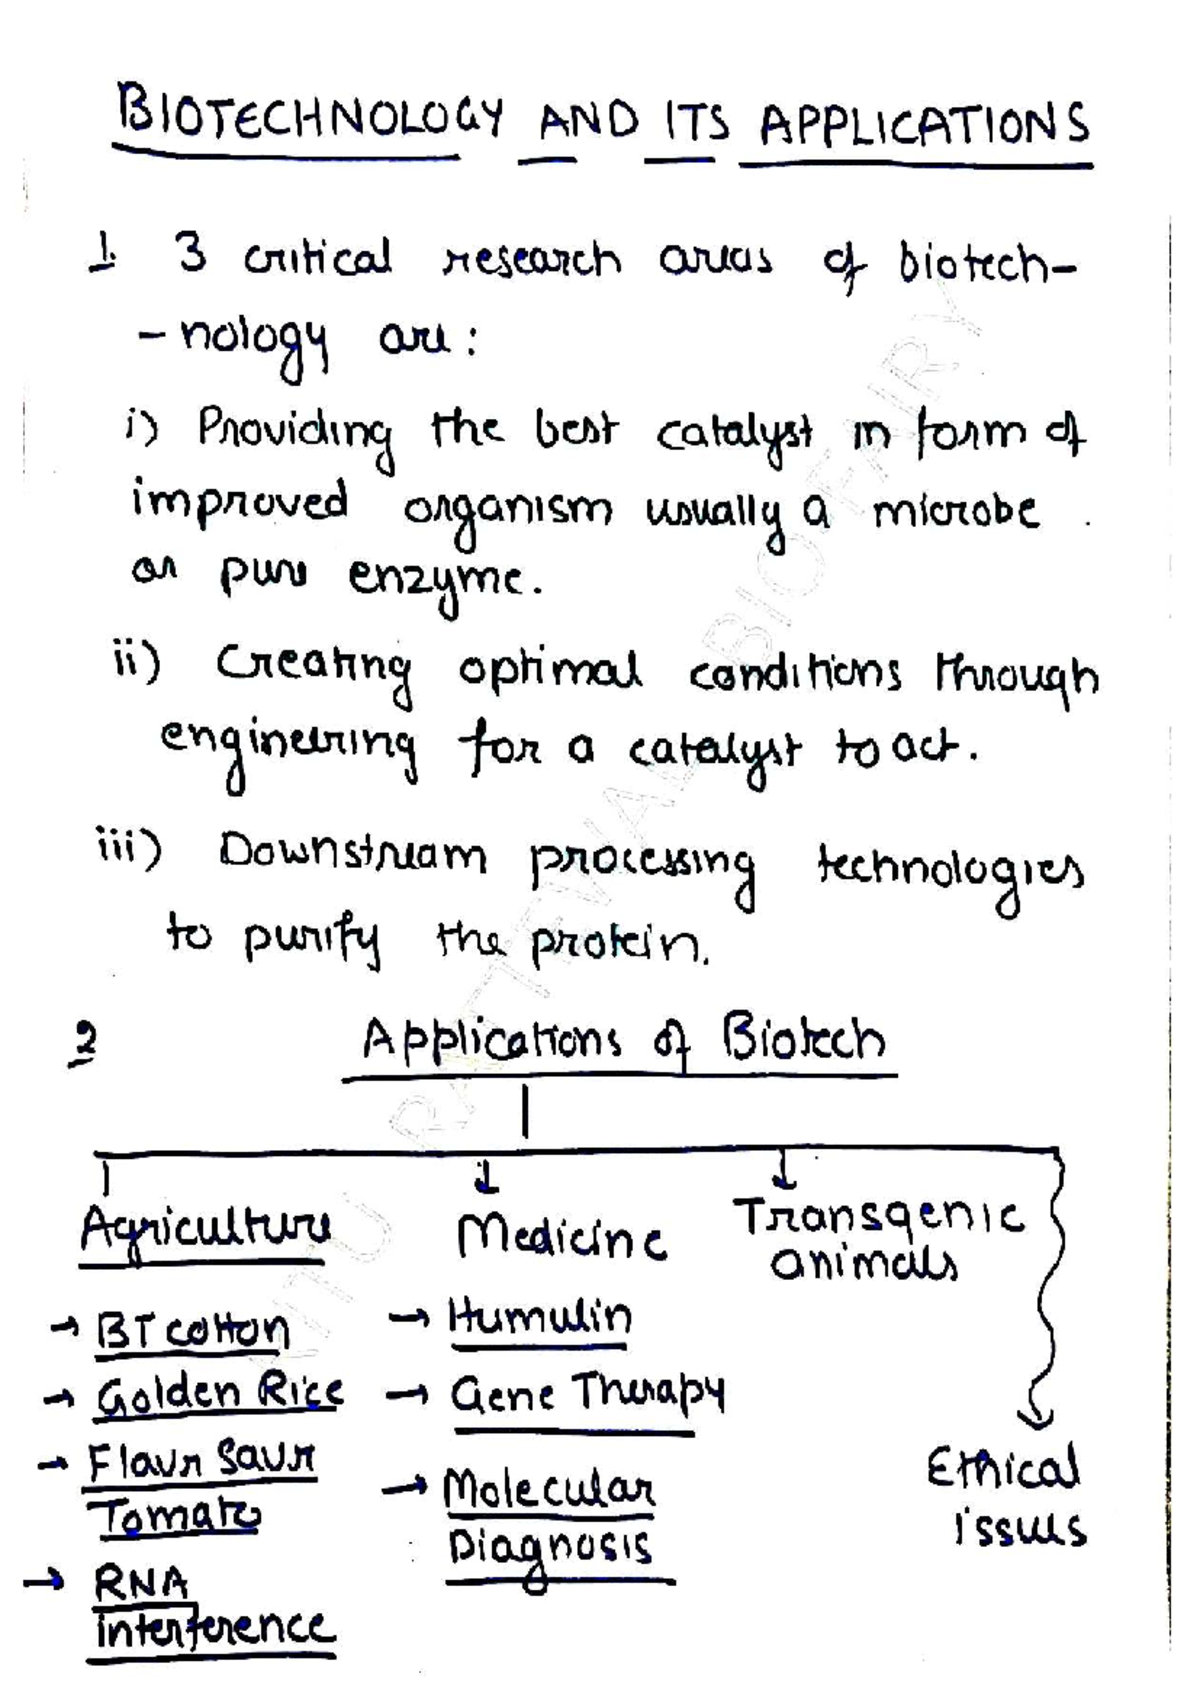 BIOTECHNOLOGY AND ITS APPLICATIONS
1. 3 critical research areas of biotech-
-nology are:
i) Providing the best catalyst in form of
improved organism usually a microbe
or pure enzyme.
ii) Creating optimal conditions through
engineering for a catalyst to act.
iii) Downstream processing technologies
to purify the protein.
2 Applications of Biotech
Agriculture Medicine Transgenic
animals
→ BT cotton → Humulin
→ Golden Rice → Gene Therapy
→ Flavr Savr
Tomato
→ Molecular
Diagnosis
Ethical
issues
→ RNA
interference